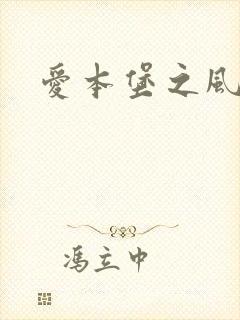 愛本堡之風
馮立中